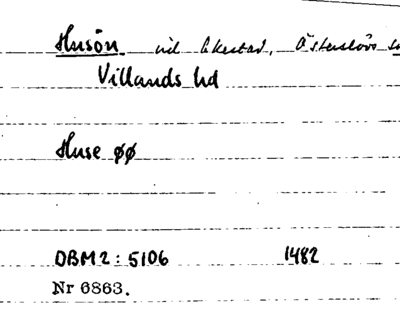 Husön vid Åkestad, Österslövs
Villands hd
Huse øø
DBM2: 5106 1482
Nr 6863.